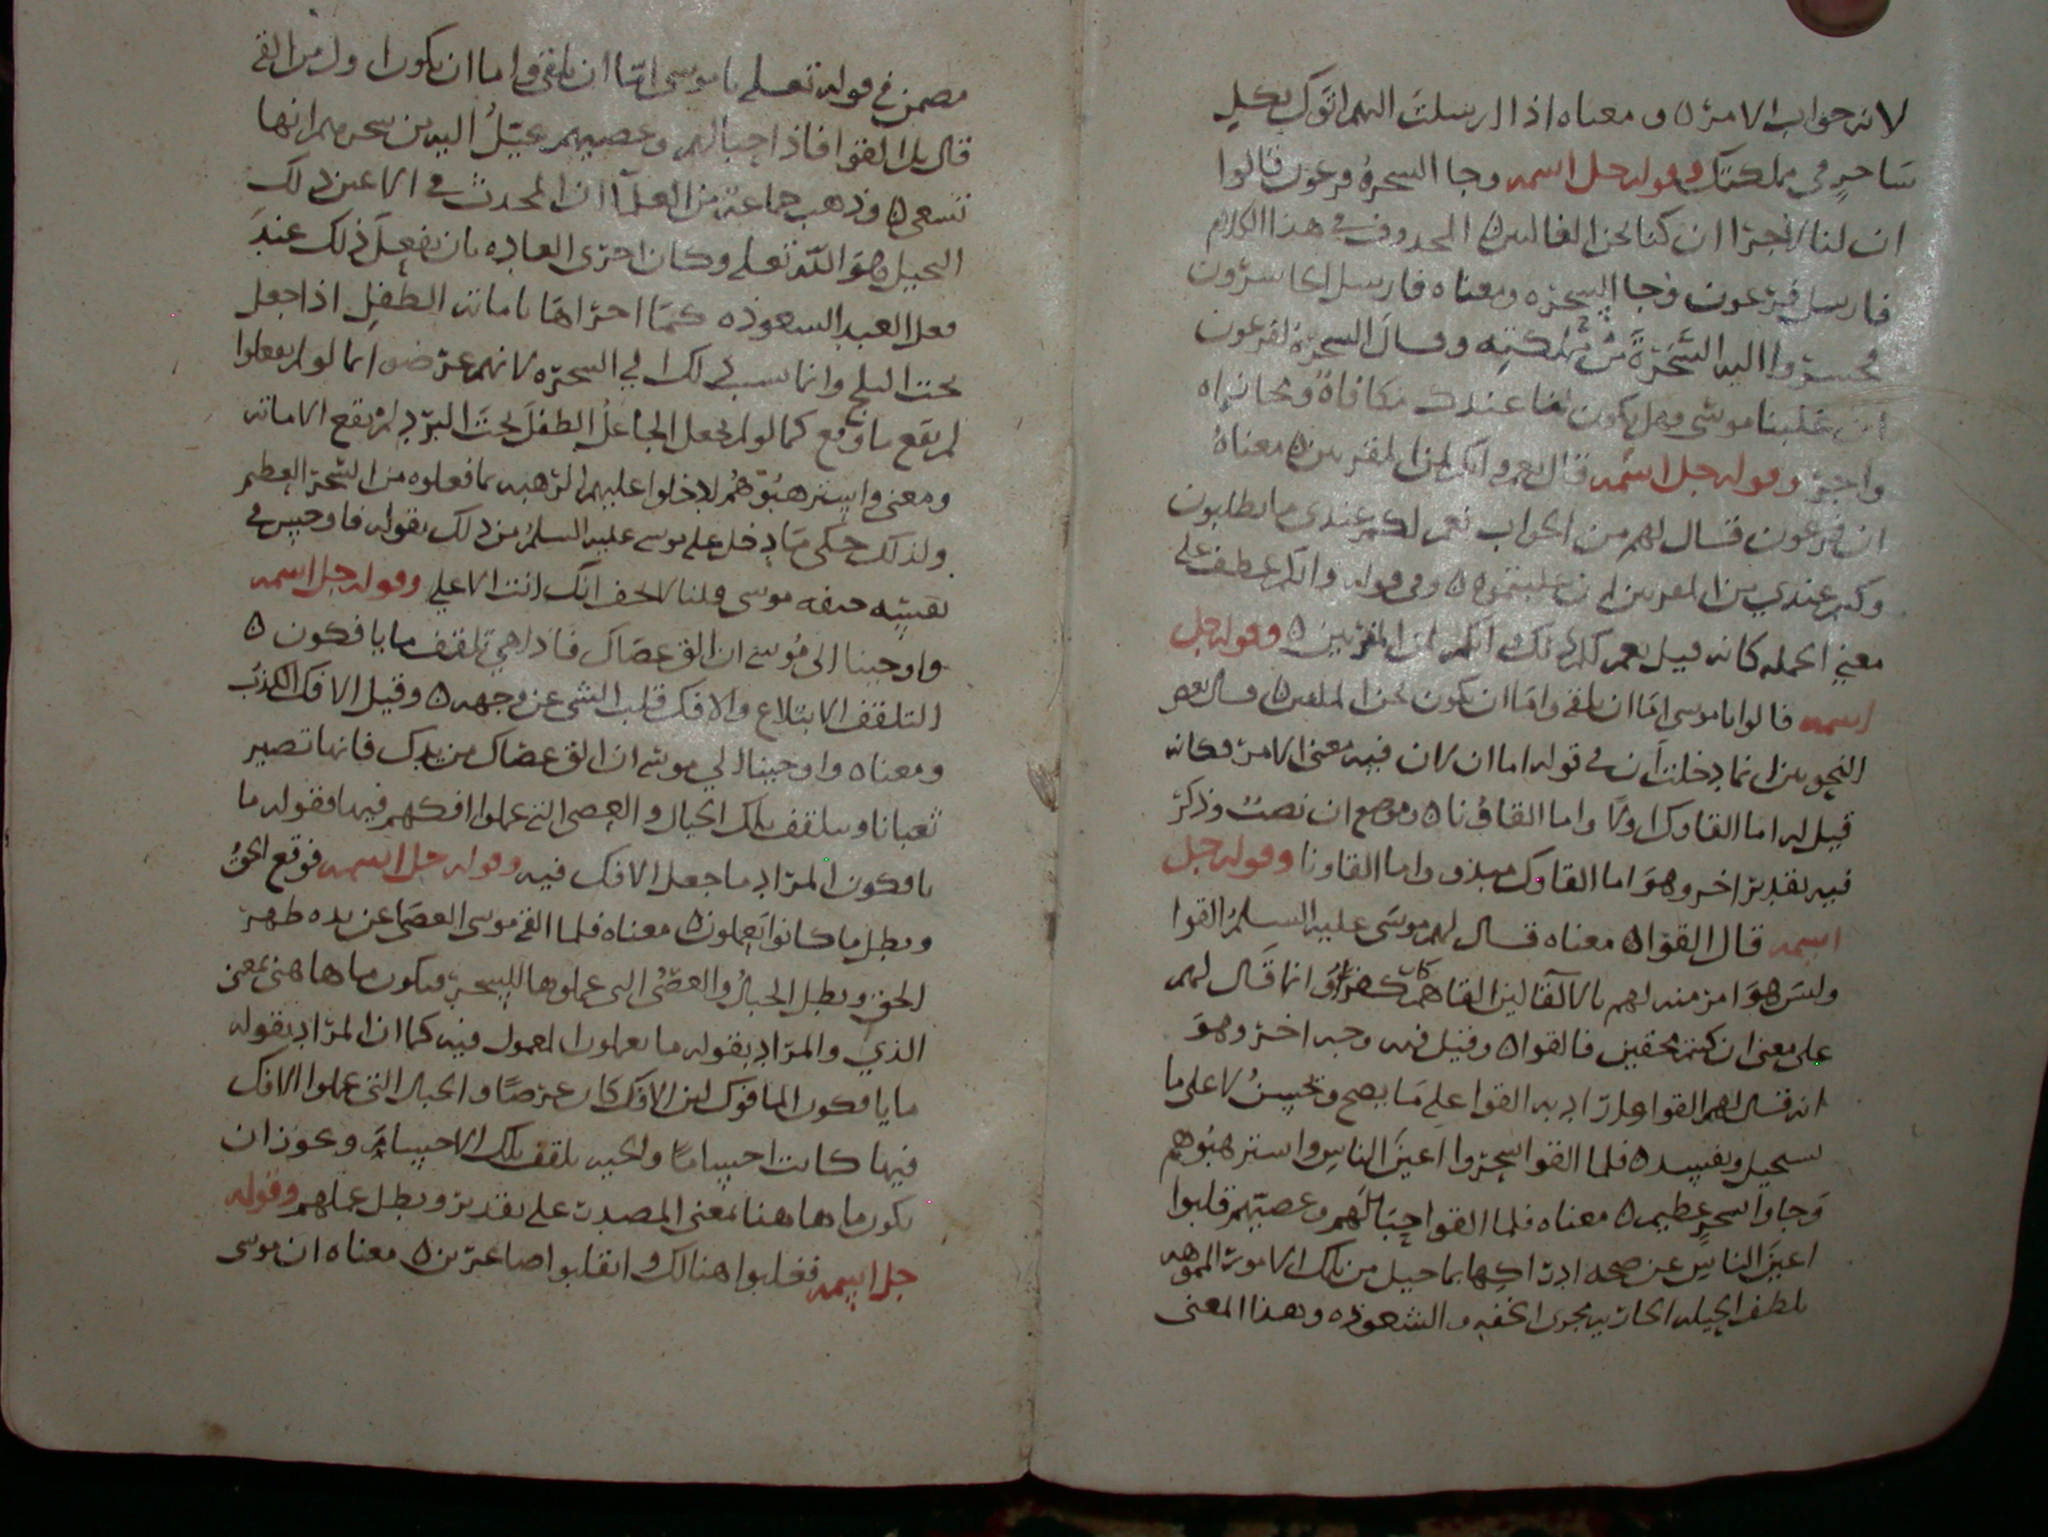 لانه جواب الامر ٥ ومعناه اذا ارسلت اليهم اتوك بكل
ساحر في مملكتك وقوله جل اسمه وجا السحرة فرعون قالوا
ان لنا لاجرا ان كنا نحن الغالبين ٥ المحذوف في هذا الكلام
فارسل فرعون وجا السحره ومعناه فارسل الحاشرون
فحشروا اليه السحرة من مملكته وقال السحرة لفرعون
ان غلبنا موسى فهل يكون لنا عندك مكافاة ومجازاه
واجر وقوله جل اسمه قال نعم وانكم لمن المقربين ٥ معناه
ان فرعون قال لهم من الجواب نعم لكم عندي ما تطلبون
وكنتم عندي من المقربين ان غلبتموه ٥ وفي قوله وانكم عطف على
معنى الجمله كانه قيل نعم لكم ذلك وانكم لمن المقربين ٥ وقوله جل
اسمه قالوا يا موسى اما ان تلقي واما ان نكون نحن الملقين ٥ وقال بعض
النحويين انما دخلت ان في قوله اما ان لان فيه معنى الامر فكانه
قيل له اما القاوك اولا واما القاونا ٥ وموضع ان نصب وذكر
فيه تقدير اخر وهو اما القاوك مبدو واما القاونا وقوله جل
اسمه قال القوا ٥ معناه قال لهم موسى عليه السلم القوا
وليس هو امر منه لهم بالالقا لان القاهم كان كفرا وانما قال لهم
على معنى ان كنتم محقين فالقوا ٥ وقيل فيه وجه اخر وهو
انه قال لهم القوا واراد به القوا على ما يصح ويحسن لا على ما
يستحيل ويفسد ٥ فلما القوا سحروا اعين الناس واسترهبوهم
وجاوا بسحر عظيم ٥ معناه فلما القوا حبالهم وعصيهم قلبوا
اعين الناس عن صحه ادراكها بما خيل من تلك الامور المموهه
بلطف الحيله الجاريه مجرى الخفه والشعوذه وهذا المعنى
مضمن في قوله تعالى يا موسى اما ان تلقي واما ان نكون اول من القى
قال بل القوا فاذا حبالهم وعصيهم يخيل اليه من سحرهم انها
تسعى ٥ وذهب جماعة من العلما ان المحدث في الاعين ذلك
التخييل هو الله تعالى وكان اجرى العاده بان يفعل ذلك عند
فعل العبد الشعوذه كما اجراها باماته الطفل اذا جعل
تحت الثلج وانما نسب ذلك الى السحره لانهم عرضوا بما لو لم يفعلوا
لم يقع ما وقع كما لو لم يجعل الجاعل الطفل تحت البرد لم تقع الاماته
ومعنى واسترهبوهم ادخلوا عليهم الرهبه بما فعلوه من السحر العظيم
ولذلك حكى ما دخل على موسى عليه السلم من ذلك بقوله فاوجس في
نفسه خيفه موسى قلنا لا تخف انك انت الاعلى وقوله جل اسمه
واوحينا الى موسى ان الق عصاك فاذا هي تلقف ما يافكون ٥
التلقف الابتلاع والافك قلب الشي عن وجهه ٥ وقيل الافك الكذب
ومعناه واوحينا الى موسى ان الق عصاك من يدك فانها تصير
ثعبانا وستلقف تلك الحبال والعصى التي عملوا افكهم فيها فقوله ما
يافكون المراد ما جعل الافك فيه وقوله جل اسمه فوقع الحق
وبطل ما كانوا يعملون ٥ معناه فلما القى موسى العصا عن يده ظهر
الحق وبطل الحبال والعصى التي عملوها للسحر فيكون ما هاهنا بمعنى
الذي والمراد بقوله ما يعملون المعمول فيه كما ان المراد بقوله
ما يافكون المافوك لان الافك كان عرضا والحبال التي عملوا الافك
فيها كانت اجساما والحيه تلقف تلك الاجسام ويجوز ان
يكون ما هاهنا بمعنى المصدر على تقدير وبطل عملهم وقوله
جل اسمه فغلبوا هنالك وانقلبوا صاغرين ٥ معناه ان موسى